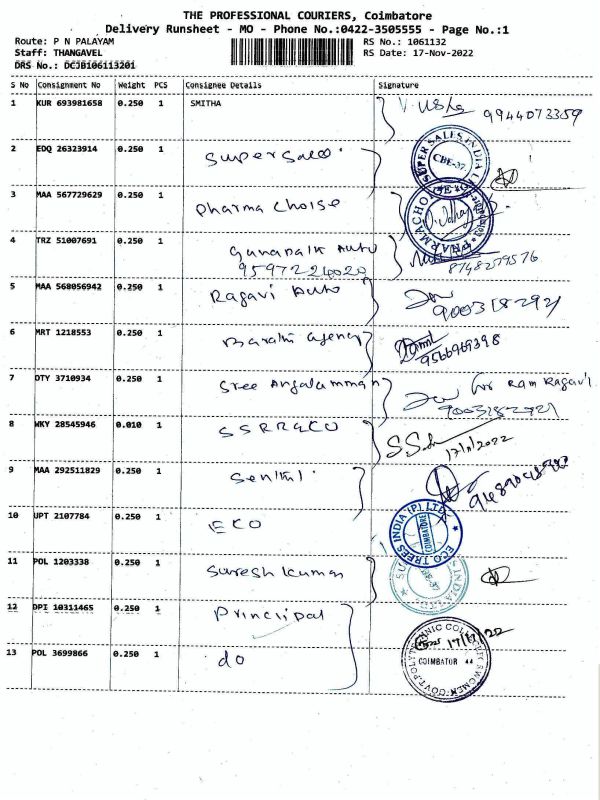 THE PROFESSIONAL COURIERS, Coimbatore
Delivery Runsheet - MO - Phone No.:0422-3505555 - Page No.:1
Route: P N PALAYAM
RS No.: 1061132
Staff: THANGAVEL
RS Date: 17-Nov-2022
DRS No.: DCJB106113201
S No Consignment No Weight PCS Consignee Details Signature
1 KUR 693981658 0.250 1 SMITHA V. Usha 9944073359
2 EDQ 26323914 0.250 1 Super Sales
SUPER SALES INDIA CBE-37
3 MAA 567729629 0.250 1 Pharma Choise
PHARMA
4 TRZ 51007691 0.250 1 Auto
9597226020 8748279576
5 MAA 568056942 0.250 1 Ragavi Auto
9003182921
6 MRT 1218553 0.250 1 Barathi agency
9566969398
7 DTY 3710934 0.250 1 Sree Angalamman for Ram Ragavi
9003182921
8 WKY 28545946 0.010 1
17/11/2022
9 MAA 292511829 0.250 1 Senthil
10 UPT 2107784 0.250 1 EKO
ECO TREES INDIA (P) LTD. COIMBATORE
11 POL 1203338 0.250 1 Sureshkumar
12 DPI 10311465 0.250 1 Principal
17/11/22
13 POL 3699866 0.250 1 do
COIMBATOR 44